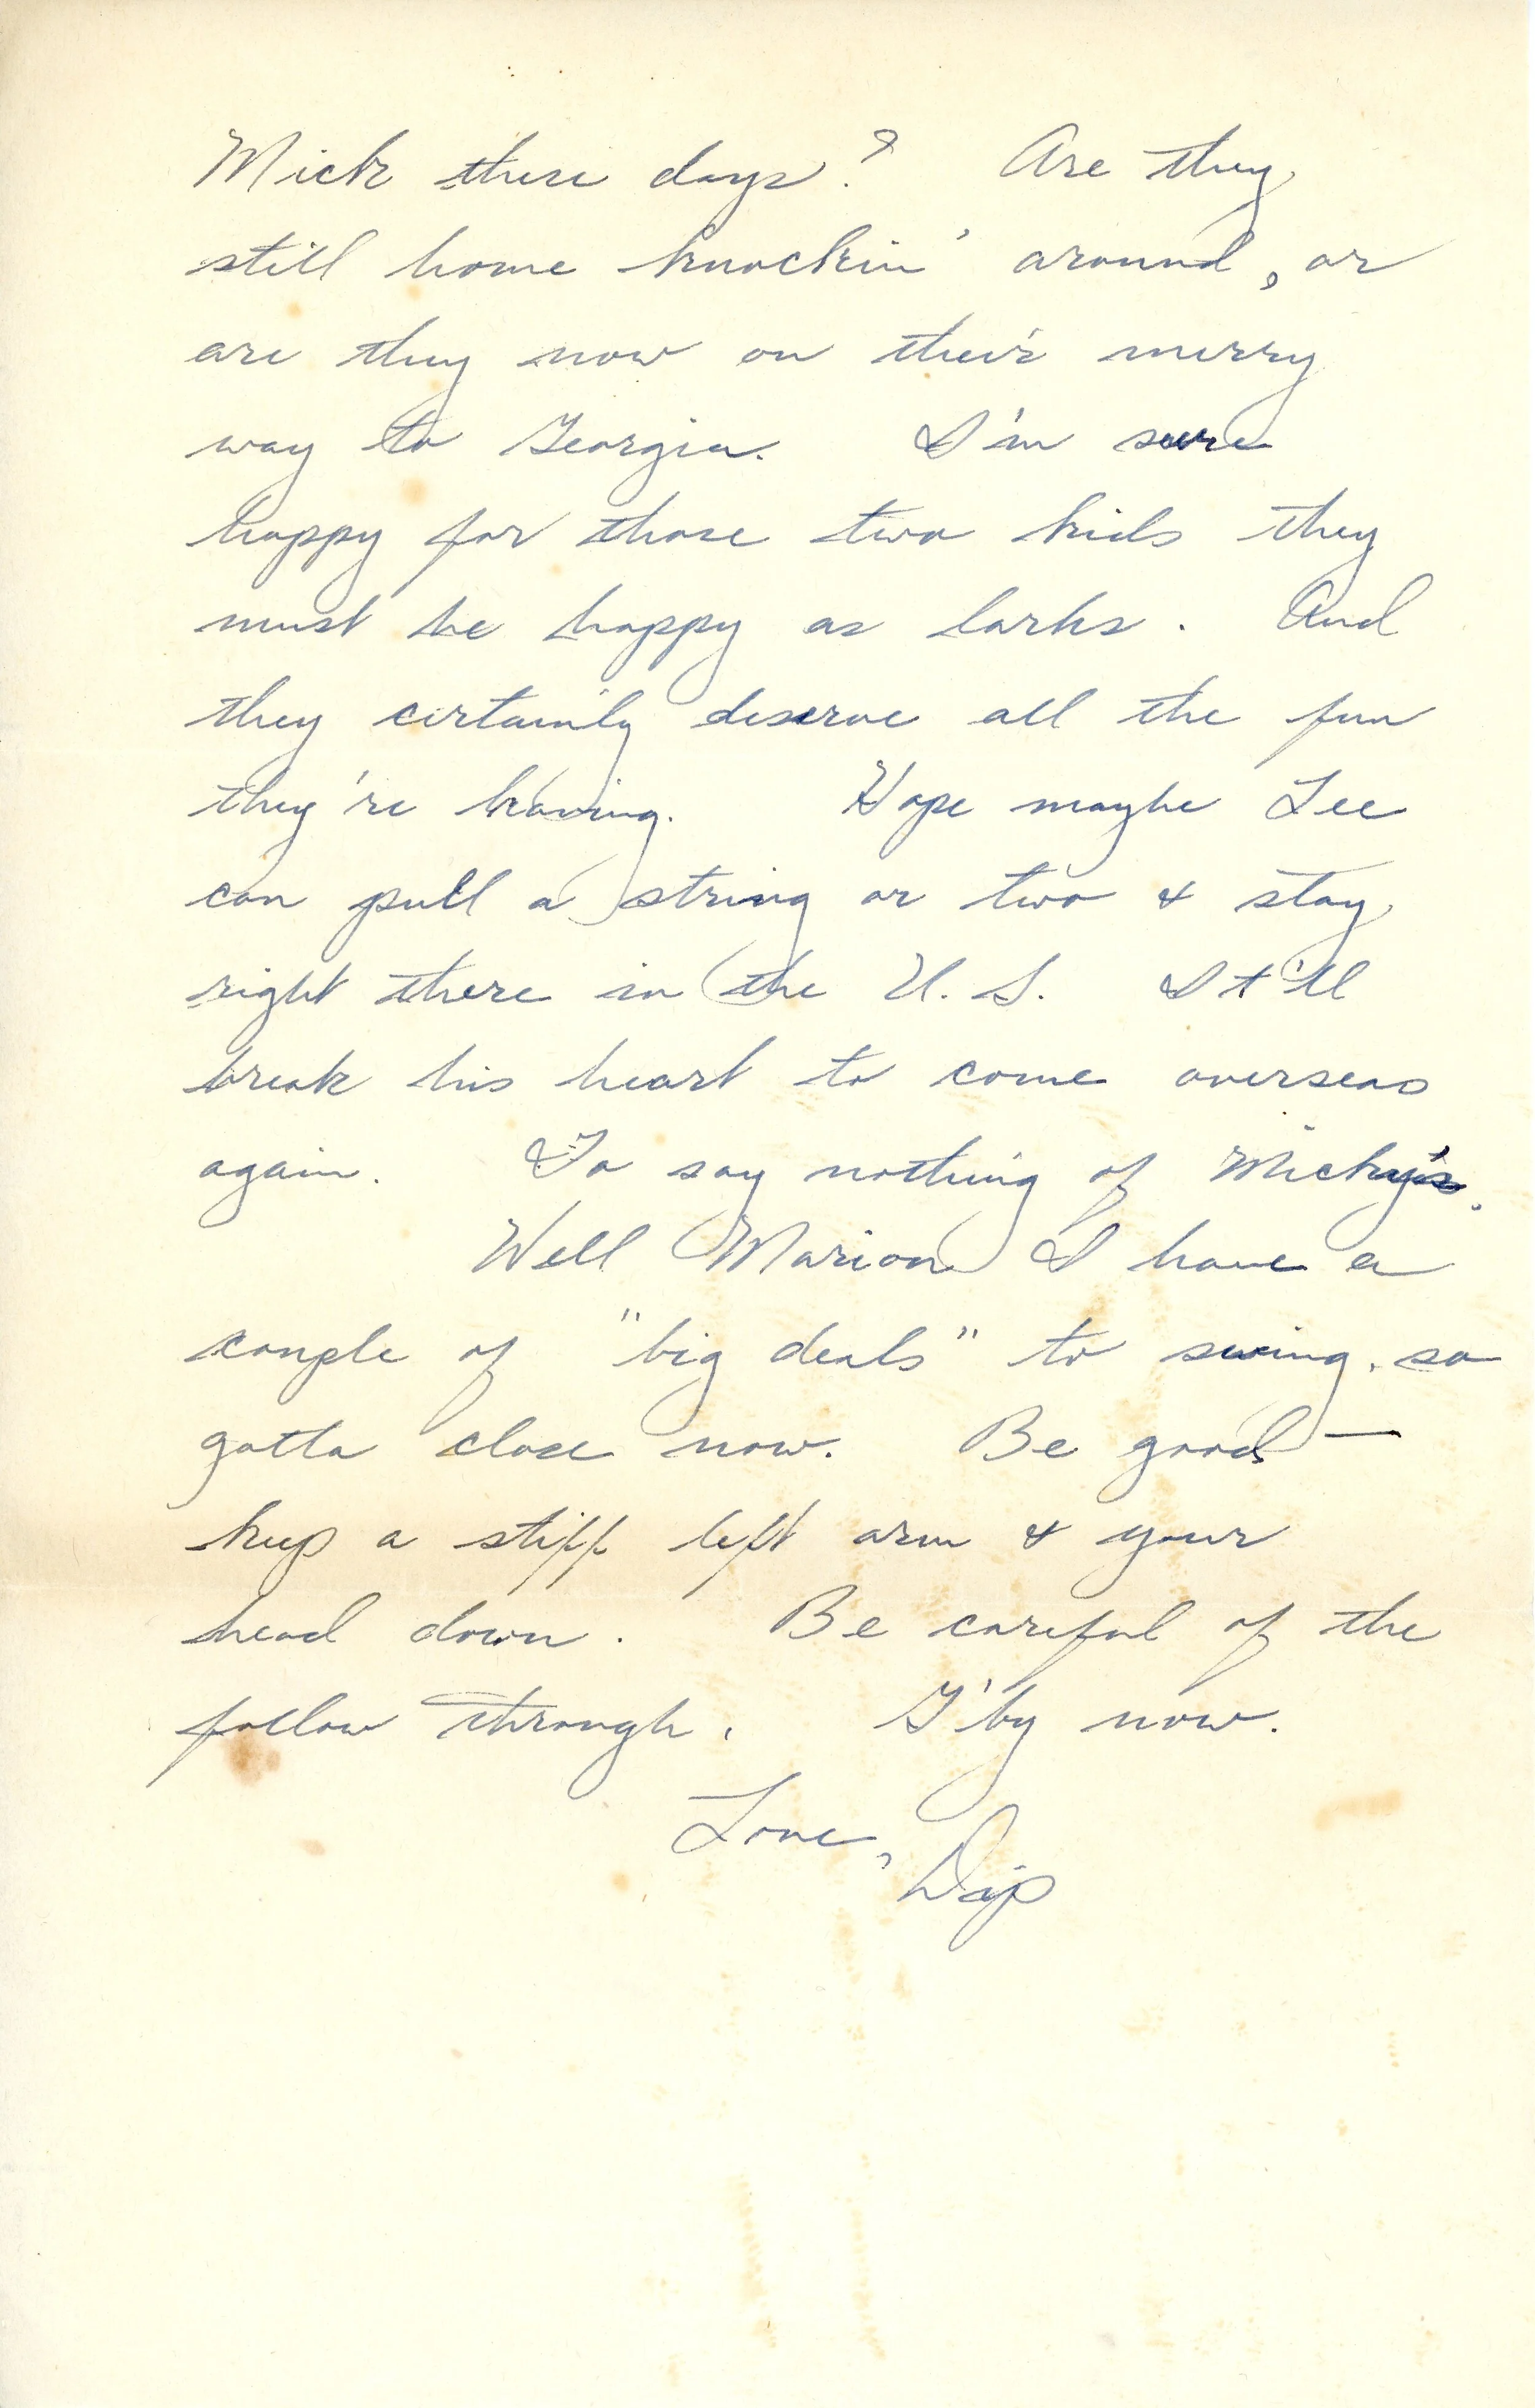 Mick these days? Are they
still home knockin' around, or
are they now on their merry
way to Georgia. I'm sure
happy for those two kids they
must be happy as larks. And
they certainly deserve all the fun
they're having. Hope maybe Lee
can pull a string or two & stay
right there in the U.S. It'll
break his heart to come overseas
again. To say nothing of Micky's.
Well Marion I have a
couple of "big deals" to swing, so
gotta close now. Be good —
keep a stiff left arm & your
head down. Be careful of the
follow through. G'by now.
Love,
Dip